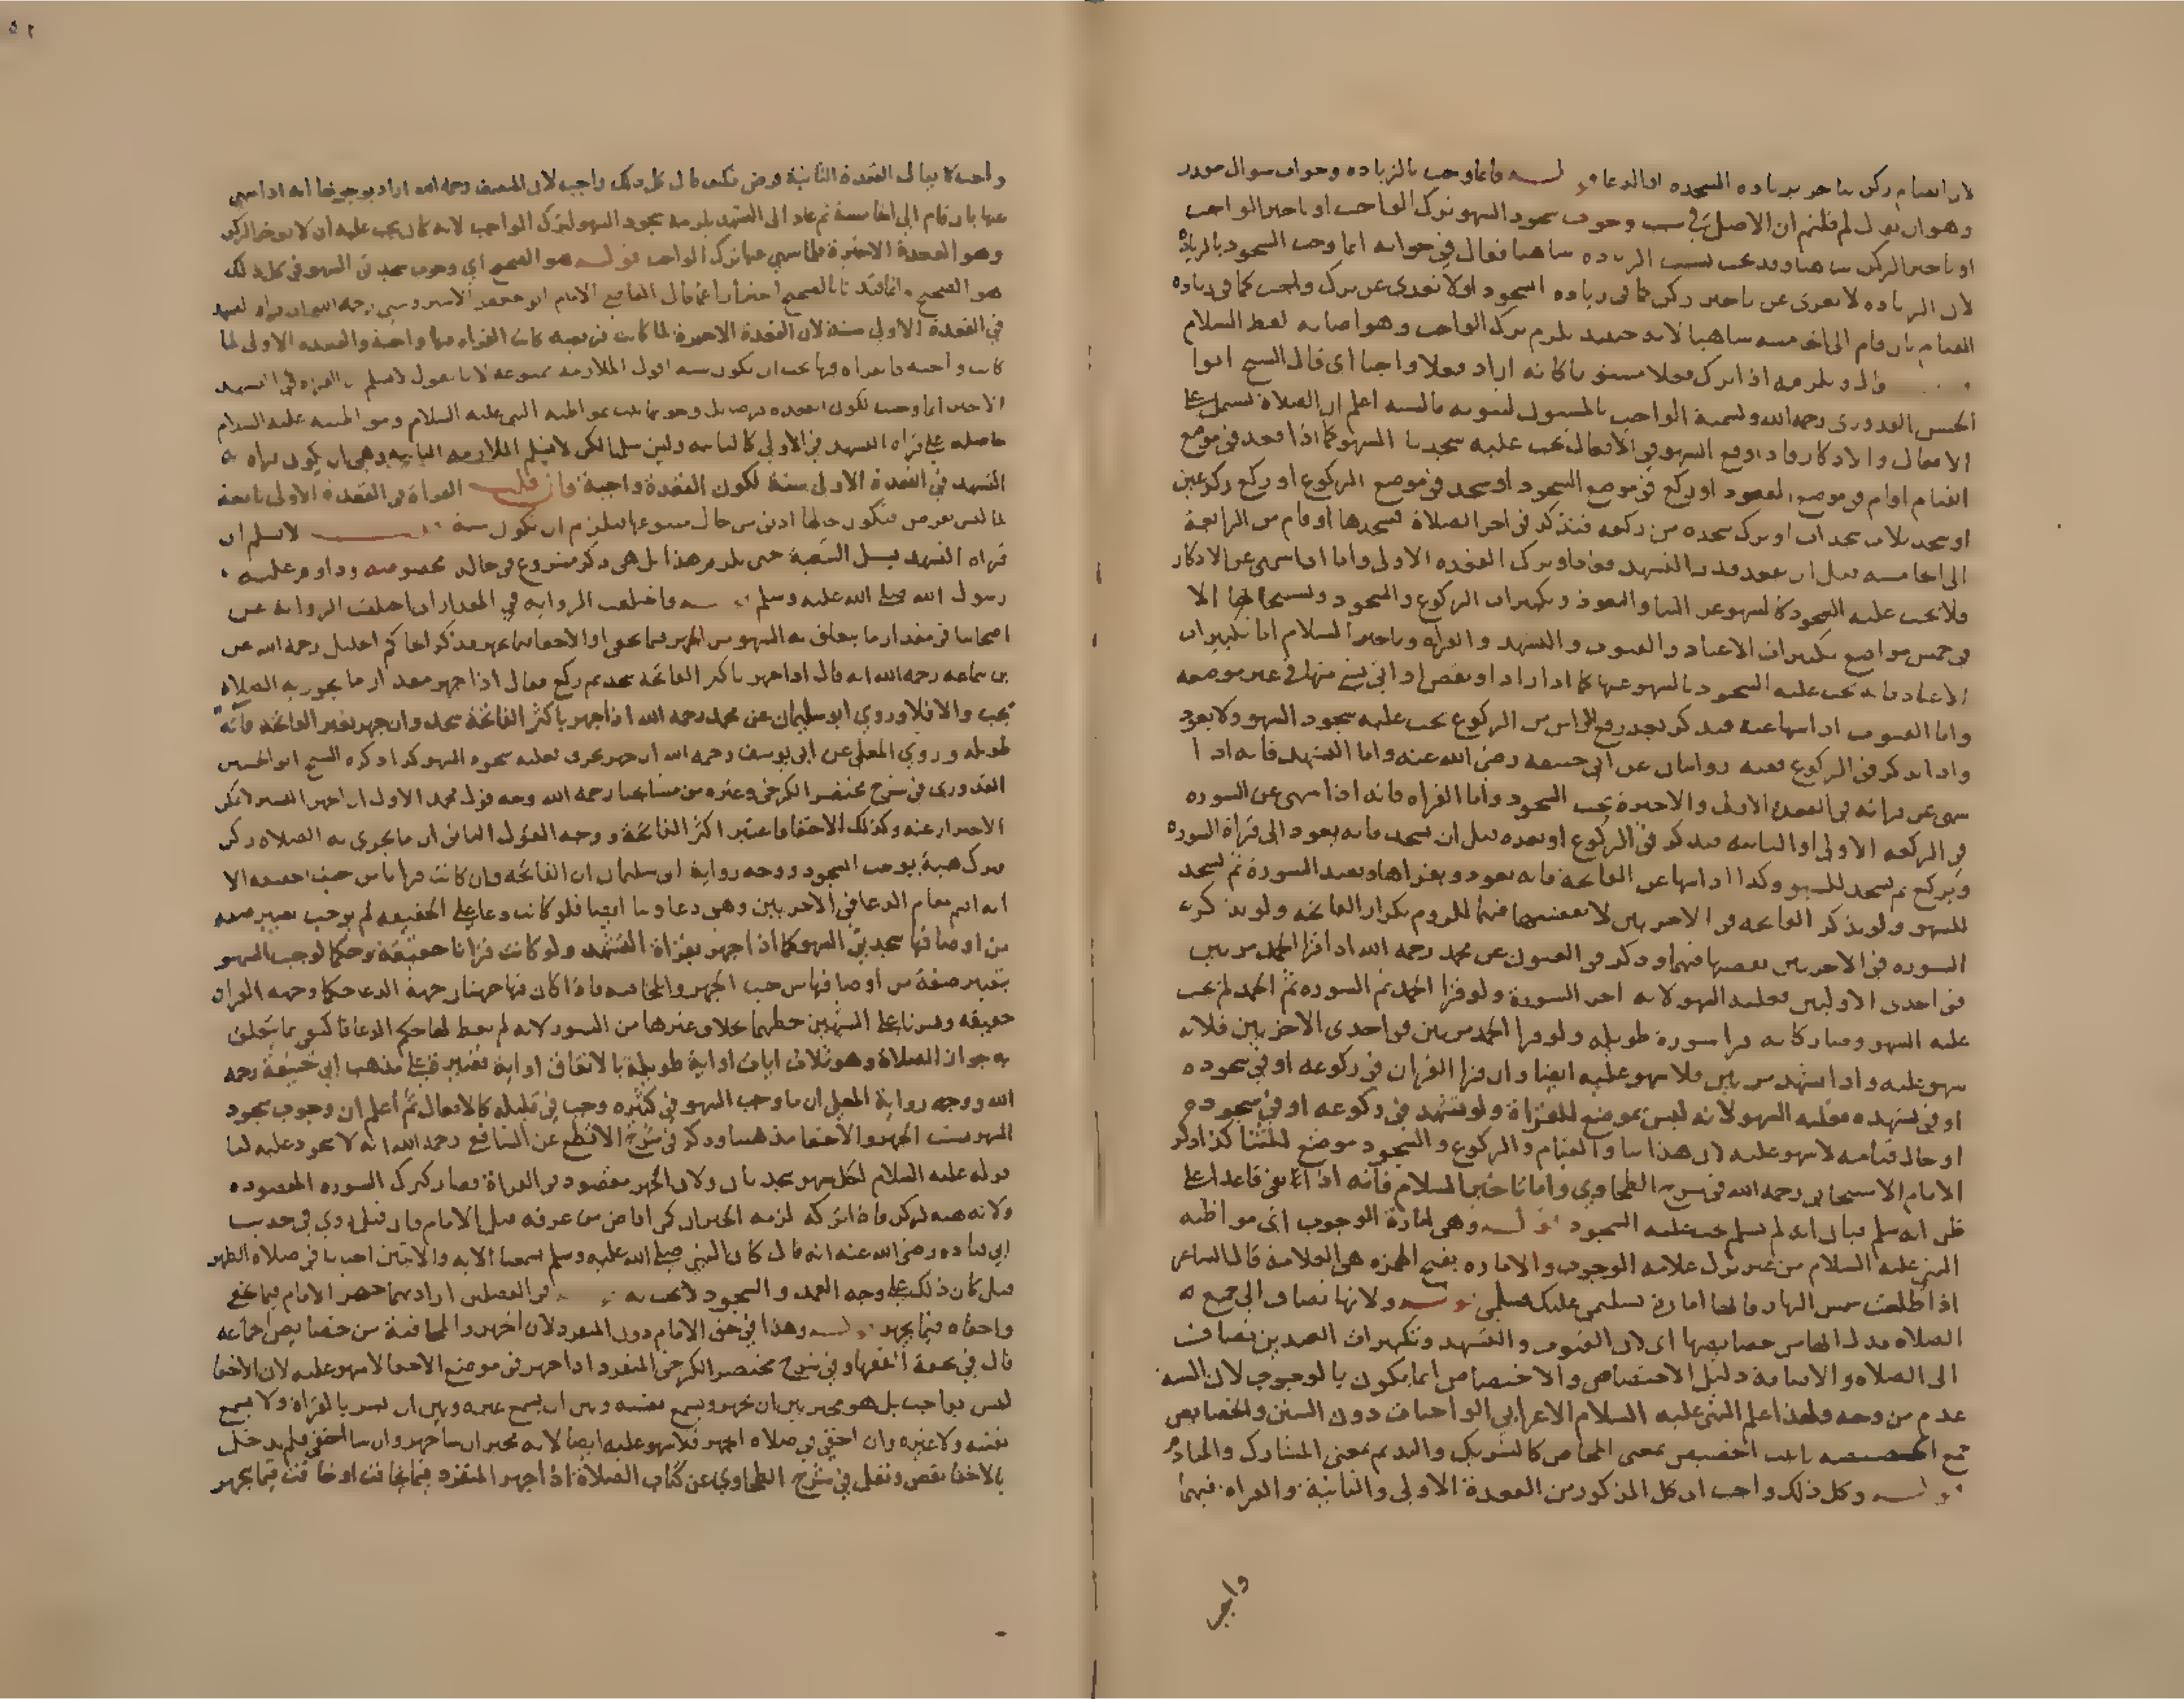 لان القيام ركن تاخر بزياده السجده او الدعا قوله وانما وجب بالزياده وجواب سوال مقدر
وهو ان يقال لم قلتم ان الاصل في سبب وجوب سجود السهو ترك الواجب او تاخير الواجب
او تاخير الركن ساهيا وقد يجب بسبب الزياده ساهيا فقال في جوابه انما وجب السجود بالزياده
لان الزياده لا تعرى عن تاخير ركن كما في زياده السجود او لا تعرى عن ترك واجب كما في زياده
القيام بان قام الى الخامسه ساهيا لانه حينيذ يلزم ترك الواجب وهو اصابه لفظ السلام
قال ويلزمه اذا ترك فعلا مسنونا كانه اراد فعلا واجبا اى قال الشيخ ابو
الحسن القدورى رحمه الله وتسمية الواجب بالمسنون لثبوته بالسنه اعلم ان الصلاة تشتمل على
الافعال والاذكار فاذا وقع السهو في الافعال يجب عليه سجدتا السهو كما اذا قعد في موضع
القيام او قام في موضع القعود او ركع في موضع السجود او سجد في موضع الركوع او ركع ركوعين
او سجد ثلاث سجدات او ترك سجده من ركعه فتذكر في اخر الصلاة فسجدها او قام من الرابعة
الى الخامسه قبل ان يقعد قدر التشهد او ترك القعده الاولى واما اذا سهى عن الاذكار
فلا يجب عليه السجود كالسهو عن الثنا والتعوذ وتكبيرات الركوع والسجود وتسبيحاتها الا
في خمس مواضع تكبيرات الاعياد والقنوت والتشهد والقراه وتاخير السلام اما تكبيرات
الاعياد فانه يجب عليه السجود بالسهو عنها كما اذا زاد او نقص او اتى بشي منها في غير موضعه
واما القنوت اذا سها عنه فتذكر بعد رفع الراس من الركوع يجب عليه سجود السهو ولا يعود
واذا تذكر في الركوع ففيه روايتان عن ابي حنيفه رضي الله عنه واما التشهد فانه اذا
سهى عن قراته في القعده الاولى والاخيرة يجب السجود واما القراه فانه اذا سهى عن السوره
في الركعه الاولى او الثانيه فتذكر في الركوع او بعده قبل ان يسجد فانه يعود الى قراة السوره
ويركع ثم يسجد للسهو وكذا اذا سها عن الفاتحة فانه يعود ويقراها ويعيد السورة ثم يسجد
للسهو ولو تذكر الفاتحه في الاخريين لا يقضيها فيهما للزوم تكرار الفاتحه ولو تذكر
السوره في الاخريين يقضيها فيهما وذكر في العيون عن محمد رحمه الله اذا قرا الحمد مرتين
في احدى الاوليين فعليه السهو لانه اخر السورة ولو قرا الحمد ثم السوره ثم الحمد لم يجب
عليه السهو وصار كانه قرا سورة طويله ولو قرا الحمد مرتين في احدى الاخريين فلا
سهو عليه واذا تشهد مرتين فلا سهو عليه ايضا وان قرا القران في ركوعه او في سجوده
او في تشهده فعليه السهو لانه ليس بموضع للقراة ولو تشهد في ركوعه او في سجوده
او حال قيامه لا سهو عليه لان هذا ثنا والقيام والركوع والسجود موضع للثنا كذا ذكر
الامام الاسبيجابى رحمه الله في شرح الطحاوي واما تاخير السلام فانه اذا بقى قاعدا على
ظن انه سلم فبان انه لم يسلم يجب عليه السجود قوله وهى امارة الوجوب اى مواظبه
النبي عليه السلام من غير ترك علامه الوجوب والاماره بفتح الهمزه هى العلامة قال الشاعر
اذا طلعت شمس النهار فانها امارة تسليمى عليك فسلمي قوله ولانها تضاف الى جميع
الصلاه فدل انها من خصايصها اى لان القنوت والتشهد وتكبيرات العيدين تضاف
الى الصلاه والاضافة دليل الاختصاص والاختصاص انما يكون بالوجوب لان السنه
عدم من وجه ولهذا علم النبي عليه السلام الاعرابي الواجبات دون السنن والخصايص
جمع الخصيصه تانيث الخصيص بمعنى الخاص كالشريك والنديم بمعنى المشارك والمنادم
قوله وكل ذلك واجب اى كل المذكور من القعدة الاولى والثانية والقراه فيهما
واجب
واجب لا يقال القعدة الثانية فرض فكيف قال كل ذلك واجب لان المصنف رحمه الله اراد بوجوبها انه اذا سهى
عنها بان قام الى الخامسة ثم عاد الى التشهد يلزمه سجود السهو لترك الواجب لانه كان يجب عليه ان لا يوخر الركن
وهو القعدة الاخيرة فلما سهى عنها ترك الواجب قوله هو الصحيح اي وجوب سجدتي السهو في كل ذلك
هو الصحيح وانما قيدنا بالصحيح احترازا عما قال القاضي الامام ابو جعفر الاستروشني رحمه الله ان قراه التشهد
في القعدة الاولى سنة لان القعدة الاخيرة لما كانت فريضه كانت القراه فيها واجبة والقعده الاولى لما
كانت واجبه فالقراه فيها يجب ان تكون سنه اقول الملازمه ممنوعه لانا نقول لا نسلم ان القراه في التشهد
الاخير انما وجبت لكون القعده فرضا بل وجوبها ثبت بمواظبه النبي عليه السلام ومواظبته عليه السلام
حاصله على قراه التشهد في الاولى كالثانيه ولين سلمنا لكن لا نسلم الملازمه الثانيه وهى ان يكون قراه
التشهد في القعدة الاولى سنة لكون القعدة واجبة فان قلت القراة في القعدة الاولى تابعة
لما ليس بفرض فتكون حالها ادنى من حال متبوعها فيلزم ان تكون سنة قلت لا نسلم ان
قراه التشهد بسبيل التبعية حتى يلزم هذا بل هى ذكر مشروع في حالة مخصوصه وداوم عليه
رسول الله صلى الله عليه وسلم قوله واختلفت الروايه في المقدار اى اختلفت الروايه عن
اصحابنا في مقدار ما يتعلق به السهو من الجهر فيما يخفى او الاخفا فيما يجهر فذكر الحاكم الجليل رحمه الله عن
بن سماعه رحمه الله انه قال اذا جهر باكثر الفاتحة سجد ثم رجع فقال اذا جهر مقدار ما يجوز به الصلاه
تجب والا فلا وروي ابو سليمان عن محمد رحمه الله اذا جهر باكثر الفاتحة سجد وان جهر بغير الفاتحه فاية
طويله وروي المعلى عن ابي يوسف رحمه الله ان جهر بحرف فعليه سجود السهو كذا ذكره الشيخ ابو الحسين
القدورى في شرح مختصر الكرخي وغيره من مشايخنا رحمه الله وجه قول محمد الاول ان الجهر اليسير لا يمكن
الاحتراز عنه وكذلك الاخفا فاعتبر اكثر الفاتحة ووجه القول الثاني ان ما يجزى به الصلاه ذكر
ترك هيئة يوجب السجود ووجه رواية ابى سليمان ان الفاتحه وان كانت قرانا من حيث الحقيقه الا
انه اقيم مقام الدعا في الاخريين وهى دعا وثنا ايضا فلو كانت دعا على الحقيقه لم يوجب تغيير صفه
من اوصافها سجدتى السهو كما اذا جهر بقراة التشهد ولو كانت قرانا حقيقة وحكما لوجب السهو
بتغيير صفة من اوصافها من حيث الجهر والمخافته فاذا كان فيها جهتان جهة الدعا حكما وجهه القران
حقيقه وفرنا على الشبهين حظهما بخلاف غيرها من السور لانه لم يعط لها حكم الدعا فاكتفى بما يتعلق
به جواز الصلاة وهو ثلاث ايات او اية طويلة بالاتفاق او اية قصيره على مذهب ابي حنيفة رحمه
الله ووجه رواية المعلى ان ما وجب السهو في كثيره وجب في قليله كالافعال ثم اعلم ان وجوب سجود
السهو بسبب الجهر والاخفا مذهبنا وذكر في شرح الاقطع عن الشافعي رحمه الله انه لا سجود عليه لنا
قوله عليه السلام لكل سهو سجدتان ولان الجهر مقصود في القراة فصار كترك السوره المقصوده
ولانه هيئه لركن فاذا تركه لزمه الجبران كمن افاض من عرفه قبل الامام فان قيل روي في حديث
ابي قتاده رضي الله عنه انه قال كان النبي صلى الله عليه وسلم يسمعنا الايه والايتين احيانا في صلاه الظهر
قيل كان ذلك على وجه العمد والسجود لا يجب به قوله في الفصلين اراد بهما جهر الامام فيما يخفى
واخفاه فيما يجهر قوله وهذا في حق الامام دون المنفرد لان الجهر والمخافتة من خصايص الجماعه
قال في تحفة الفقها وفي شرح مختصر الكرخي المنفرد اذا جهر في موضع الاخفا لا سهو عليه لان الاخفا
ليس بواجب بل هو مخير بين ان يجهر ويسمع نفسه وبين ان يسمع غيره وبين ان يسر بالقراة ولا يسمع
نفسه ولا غيره وان اخفى في صلاه الجهر فلا سهو عليه ايضا لانه مخير ان شا جهر وان شا اخفى فلم يدخل
بالاخفا نقص ونقل في شرح الطحاوي عن كتاب الصلاة اذا جهر المنفرد فيما يخافت او خافت فيما يجهر